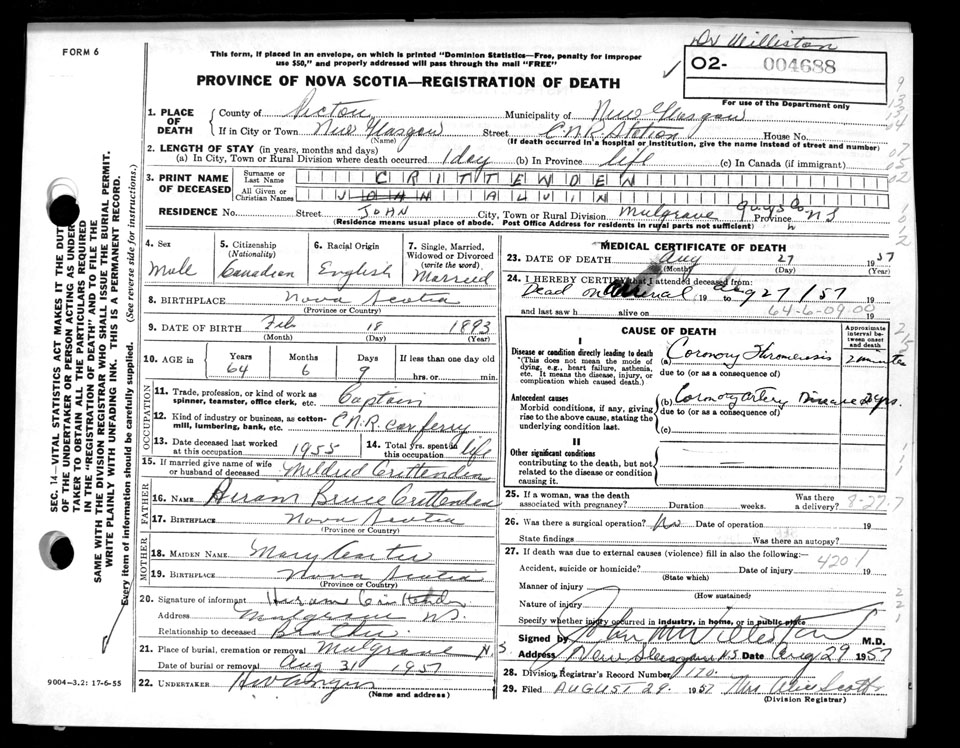 FORM 6
This form, if placed in an envelope, on which is printed "Dominion Statistics—Free, penalty for improper
use $50," and properly addressed will pass through the mail "FREE"
Dr Williston
02- 004688
For use of the Department only
PROVINCE OF NOVA SCOTIA—REGISTRATION OF DEATH
1. PLACE OF DEATH
County of Pictou Municipality of New Glasgow
If in City or Town New Glasgow Street C.N.R. Station House No.
(Name) (If death occurred in a hospital or institution, give the name instead of street and number)
2. LENGTH OF STAY (in years, months and days)
(a) In City, Town or Rural Division where death occurred 1 day (b) In Province life (c) In Canada (if immigrant)
3. PRINT NAME OF DECEASED
Surname or Last Name CRITTENDEN
All Given or Christian Names JOHN ALVIN
JOHN
RESIDENCE No. Street City, Town or Rural Division Mulgrave Guys Co Province N S
(Residence means usual place of abode. Post Office Address for residents in rural parts not sufficient)
4. Sex Male
5. Citizenship (Nationality) Canadian
6. Racial Origin English
7. Single, Married, Widowed or Divorced (write the word) Married
8. BIRTHPLACE Nova Scotia
(Province or Country)
9. DATE OF BIRTH Feb 18 1893
(Month) (Day) (Year)
10. AGE IN Years 64 Months 6 Days 9 If less than one day old hrs. or min.
OCCUPATION
11. Trade, profession, or kind of work as spinner, teamster, office clerk, etc. Captain
12. Kind of industry or business, as cotton-mill, lumbering, bank, etc. C.N.R. car ferry
13. Date deceased last worked at this occupation 1955
14. Total yrs. spent in this occupation life
15. If married give name of wife or husband of deceased Mildred Crittenden
FATHER
16. NAME Hiram Bruce Crittenden
17. BIRTHPLACE Nova Scotia
(Province or Country)
MOTHER
18. MAIDEN NAME Mary Carter
19. BIRTHPLACE Nova Scotia
(Province or Country)
20. Signature of informant Hiram Crittenden
Address Mulgrave N.S.
Relationship to deceased Brother
21. Place of burial, cremation or removal Mulgrave N.S.
Date of burial or removal Aug 31 1957
22. UNDERTAKER
(Name and address)
MEDICAL CERTIFICATE OF DEATH
23. DATE OF DEATH Aug 27 1957
(Month) (Day) (Year)
24. I HEREBY CERTIFY that I attended deceased from:
Dead on arrival 19 Aug 27/57 19
and last saw h alive on 64-6-09.00 19
CAUSE OF DEATH
Approximate interval between onset and death
I
Disease or condition directly leading to death
*(This does not mean the mode of dying, e.g., heart failure, asthenia, etc. It means the disease, injury, or complication which caused death.)
(a) Coronary Thrombosis 2 minutes
due to (or as a consequence of)
Antecedent causes
Morbid conditions, if any, giving rise to the above cause, stating the underlying condition last.
(b) Coronary Artery Disease yrs.
due to (or as a consequence of)
(c)
II
Other significant conditions
contributing to the death, but not related to the disease or condition causing it.
25. If a woman, was the death associated with pregnancy? Duration weeks. Was there a delivery? 8-27-7
26. Was there a surgical operation? No Date of operation 19
State findings Was there an autopsy?
27. If death was due to external causes (violence) fill in also the following:—
Accident, suicide or homicide? Date of injury 19
4201
(State which)
Manner of injury
(How sustained)
Nature of injury
Specify whether injury occurred in industry, in home, or in public place
Signed by John M Williston M.D.
Address New Glasgow N.S. Date Aug 29 1957
28. Division Registrar's Record Number 170
29. Filed AUGUST 29 1957 Mrs Alice Scott
(Division Registrar)
SEC. 14—VITAL STATISTICS ACT MAKES IT THE DUTY
OF THE UNDERTAKER OR PERSON ACTING AS UNDER
TAKER TO OBTAIN ALL THE PARTICULARS REQUIRED
IN THE "REGISTRATION OF DEATH" AND TO FILE THE
SAME WITH THE DIVISION REGISTRAR WHO SHALL ISSUE THE BURIAL PERMIT.
WRITE PLAINLY WITH UNFADING INK. THIS IS A PERMANENT RECORD.
Every item of information should be carefully supplied. (See reverse side for instructions.)
9004—3.2: 17-6-55